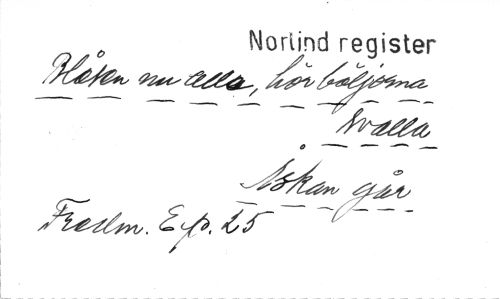 Norlind register
Blåsen nu alla, hör böljorna
svalla
Åskan går
Fredm. Ep. 25